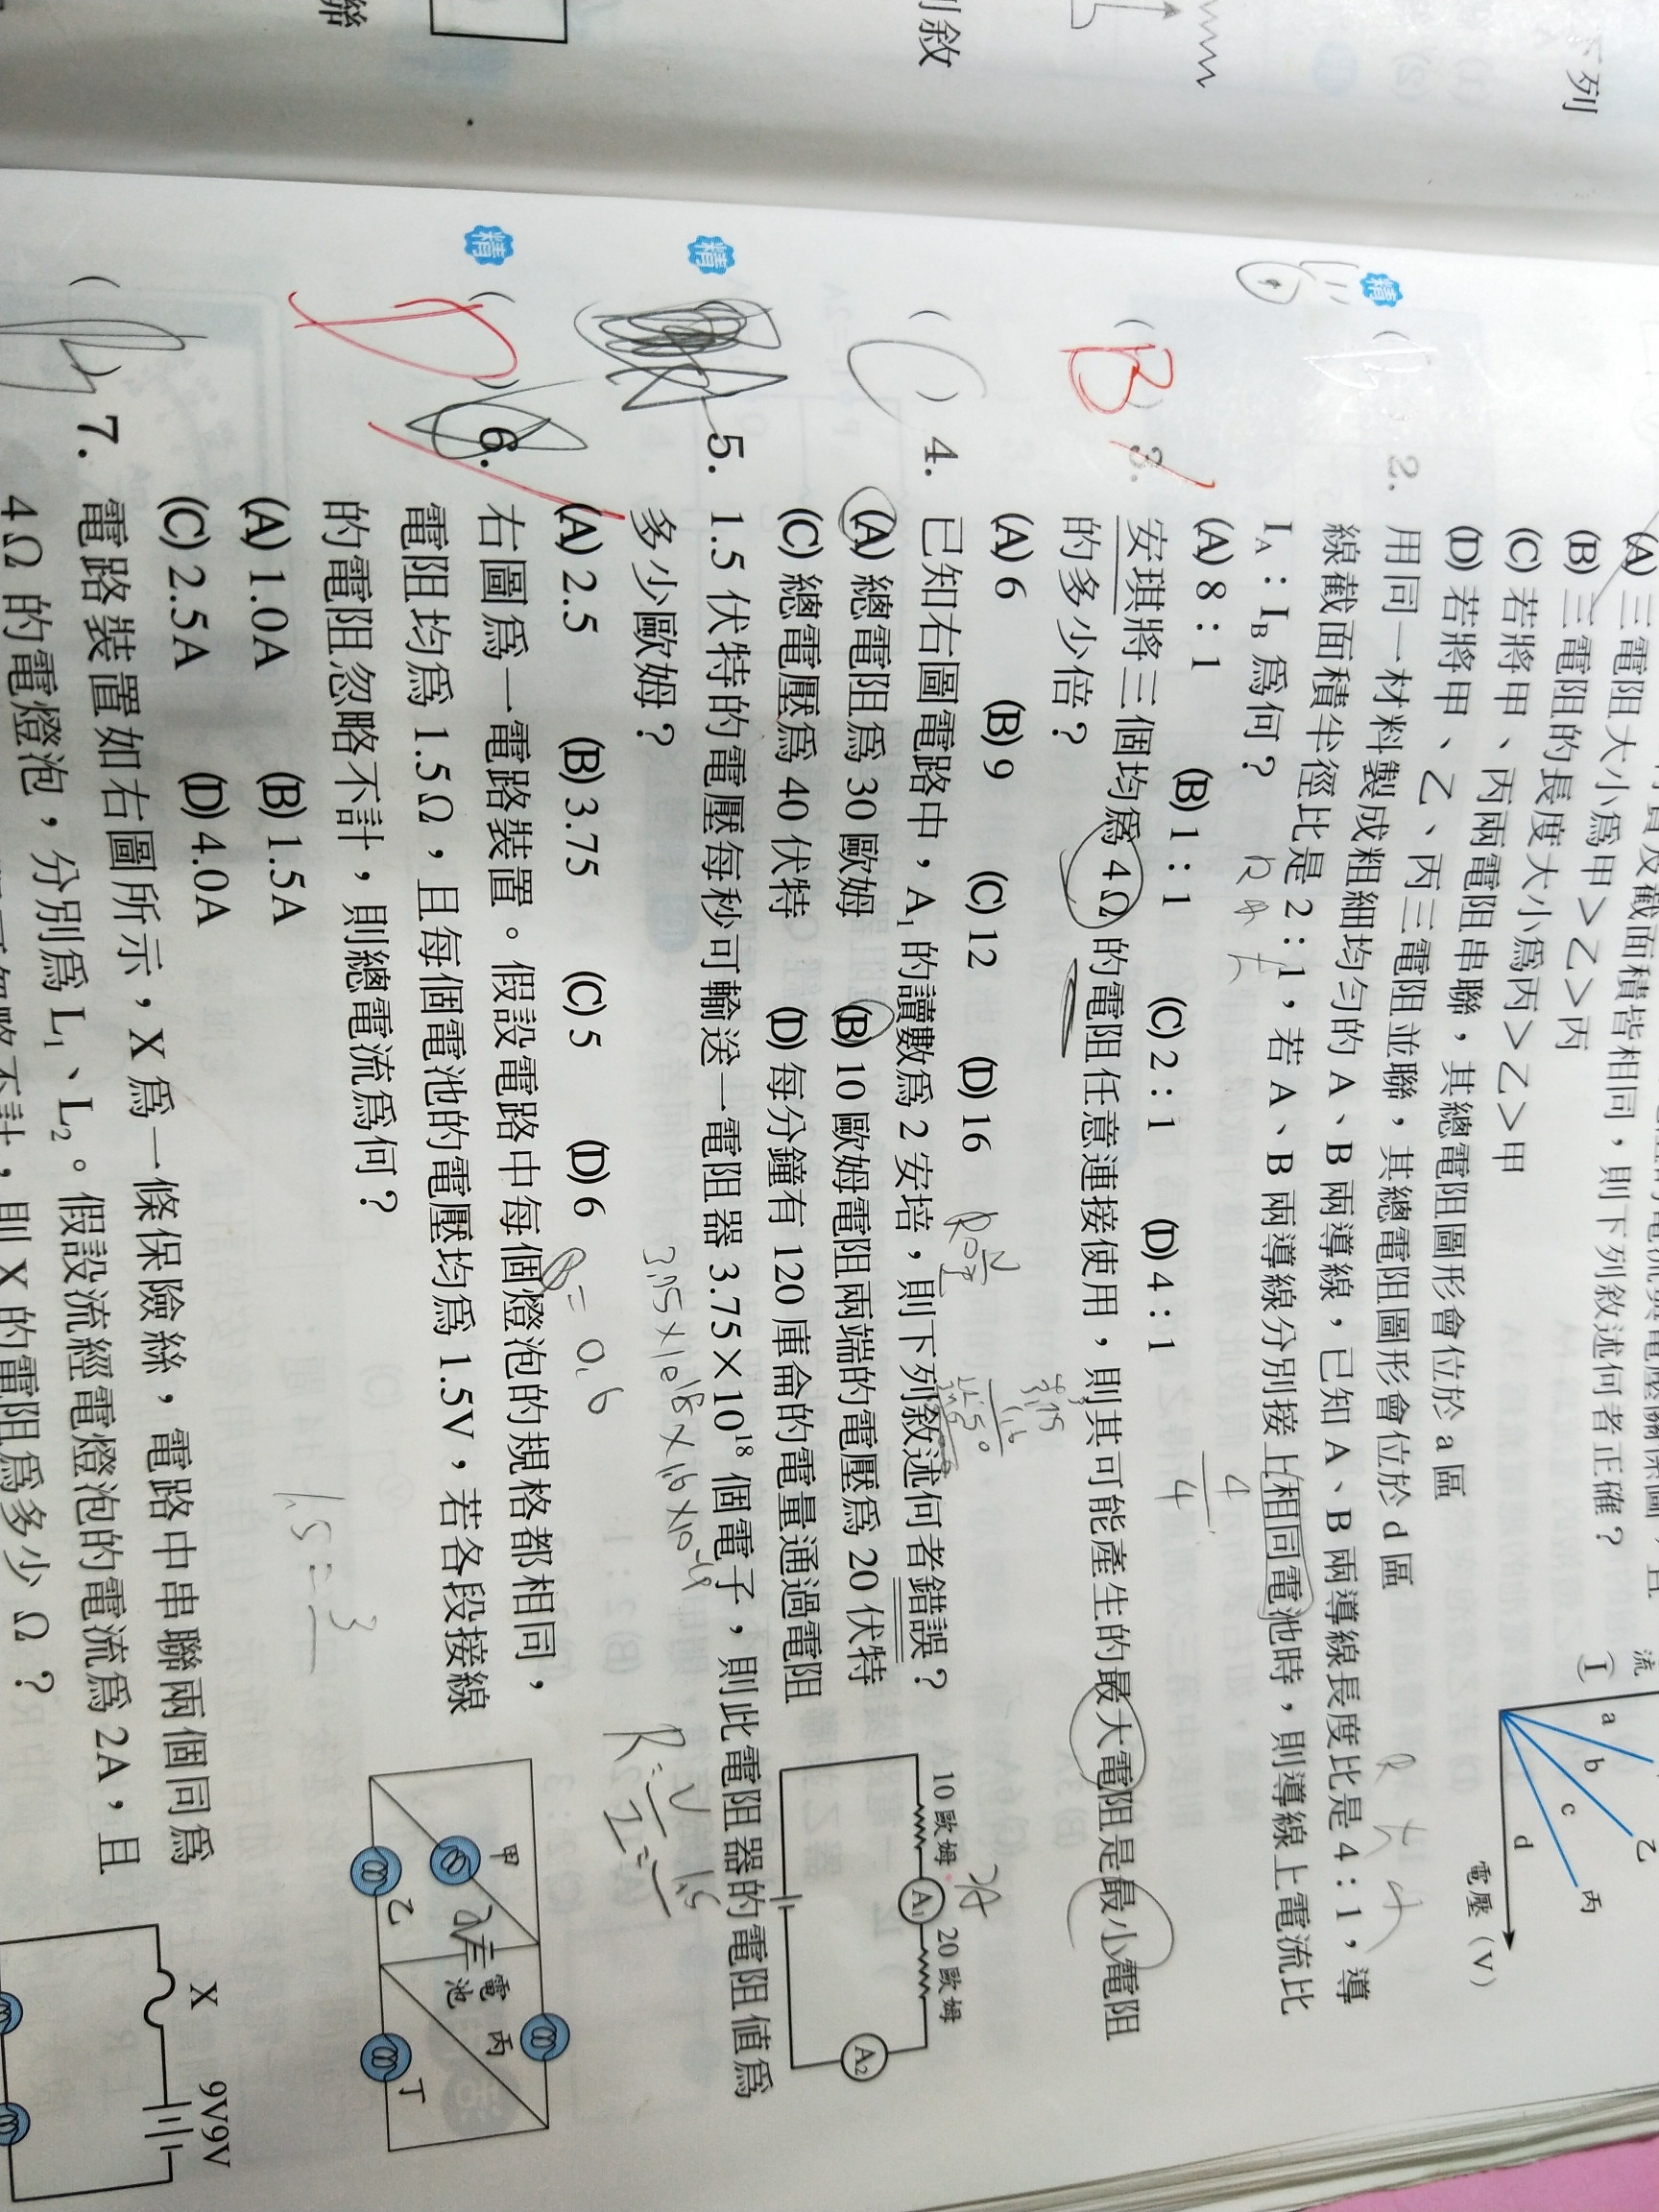 下列
列敘
(A) 三電阻大小為甲＞乙＞丙
(B) 三電阻的長度大小為丙＞乙＞甲
(C) 若將甲、丙兩電阻串聯，其總電阻圖形會位於 a 區
(D) 若將甲、乙、丙三電阻並聯，其總電阻圖形會位於 d 區
流
(I)
a
b
c
d
乙
丙
電壓（V）
精
2. 用同一材料製成粗細均勻的 A、B 兩導線，已知 A、B 兩導線長度比是 4：1，導
線截面積半徑比是 2：1，若 A、B 兩導線分別接上相同電池時，則導線上電流比
I_A：I_B 為何？
(A) 8：1 (B) 1：1 (C) 2：1 (D) 4：1
( B ) 3. 安琪將三個均為 4Ω 的電阻任意連接使用，則其可能產生的最大電阻是最小電阻
的多少倍？
(A) 6 (B) 9 (C) 12 (D) 16
4. 已知右圖電路中，A₁ 的讀數為 2 安培，則下列敘述何者錯誤？
(A) 總電阻為 30 歐姆 (B) 10 歐姆電阻兩端的電壓為 20 伏特
(C) 總電壓為 40 伏特 (D) 每分鐘有 120 庫侖的電量通過電阻
10 歐姆
A₁
20 歐姆
A₂
2A
精
5. 1.5 伏特的電壓每秒可輸送一電阻器 3.75×10¹⁸ 個電子，則此電阻器的電阻值為
多少歐姆？
3.75×10¹⁸×1.6×10⁻¹⁹
(A) 2.5 (B) 3.75 (C) 5 (D) 6
= 0.6
精
( D ) 6. 右圖為一電路裝置。假設電路中每個燈泡的規格都相同，
電阻均為 1.5Ω，且每個電池的電壓均為 1.5V，若各段接線
的電阻忽略不計，則總電流為何？
(A) 1.0A (B) 1.5A
(C) 2.5A (D) 4.0A
甲
乙
電池
丙
丁
7. 電路裝置如右圖所示，X 為一條保險絲，電路中串聯兩個同為
4Ω 的電燈泡，分別為 L₁、L₂。假設流經電燈泡的電流為 2A，且
則 X 的電阻為多少 Ω？
X
9V9V